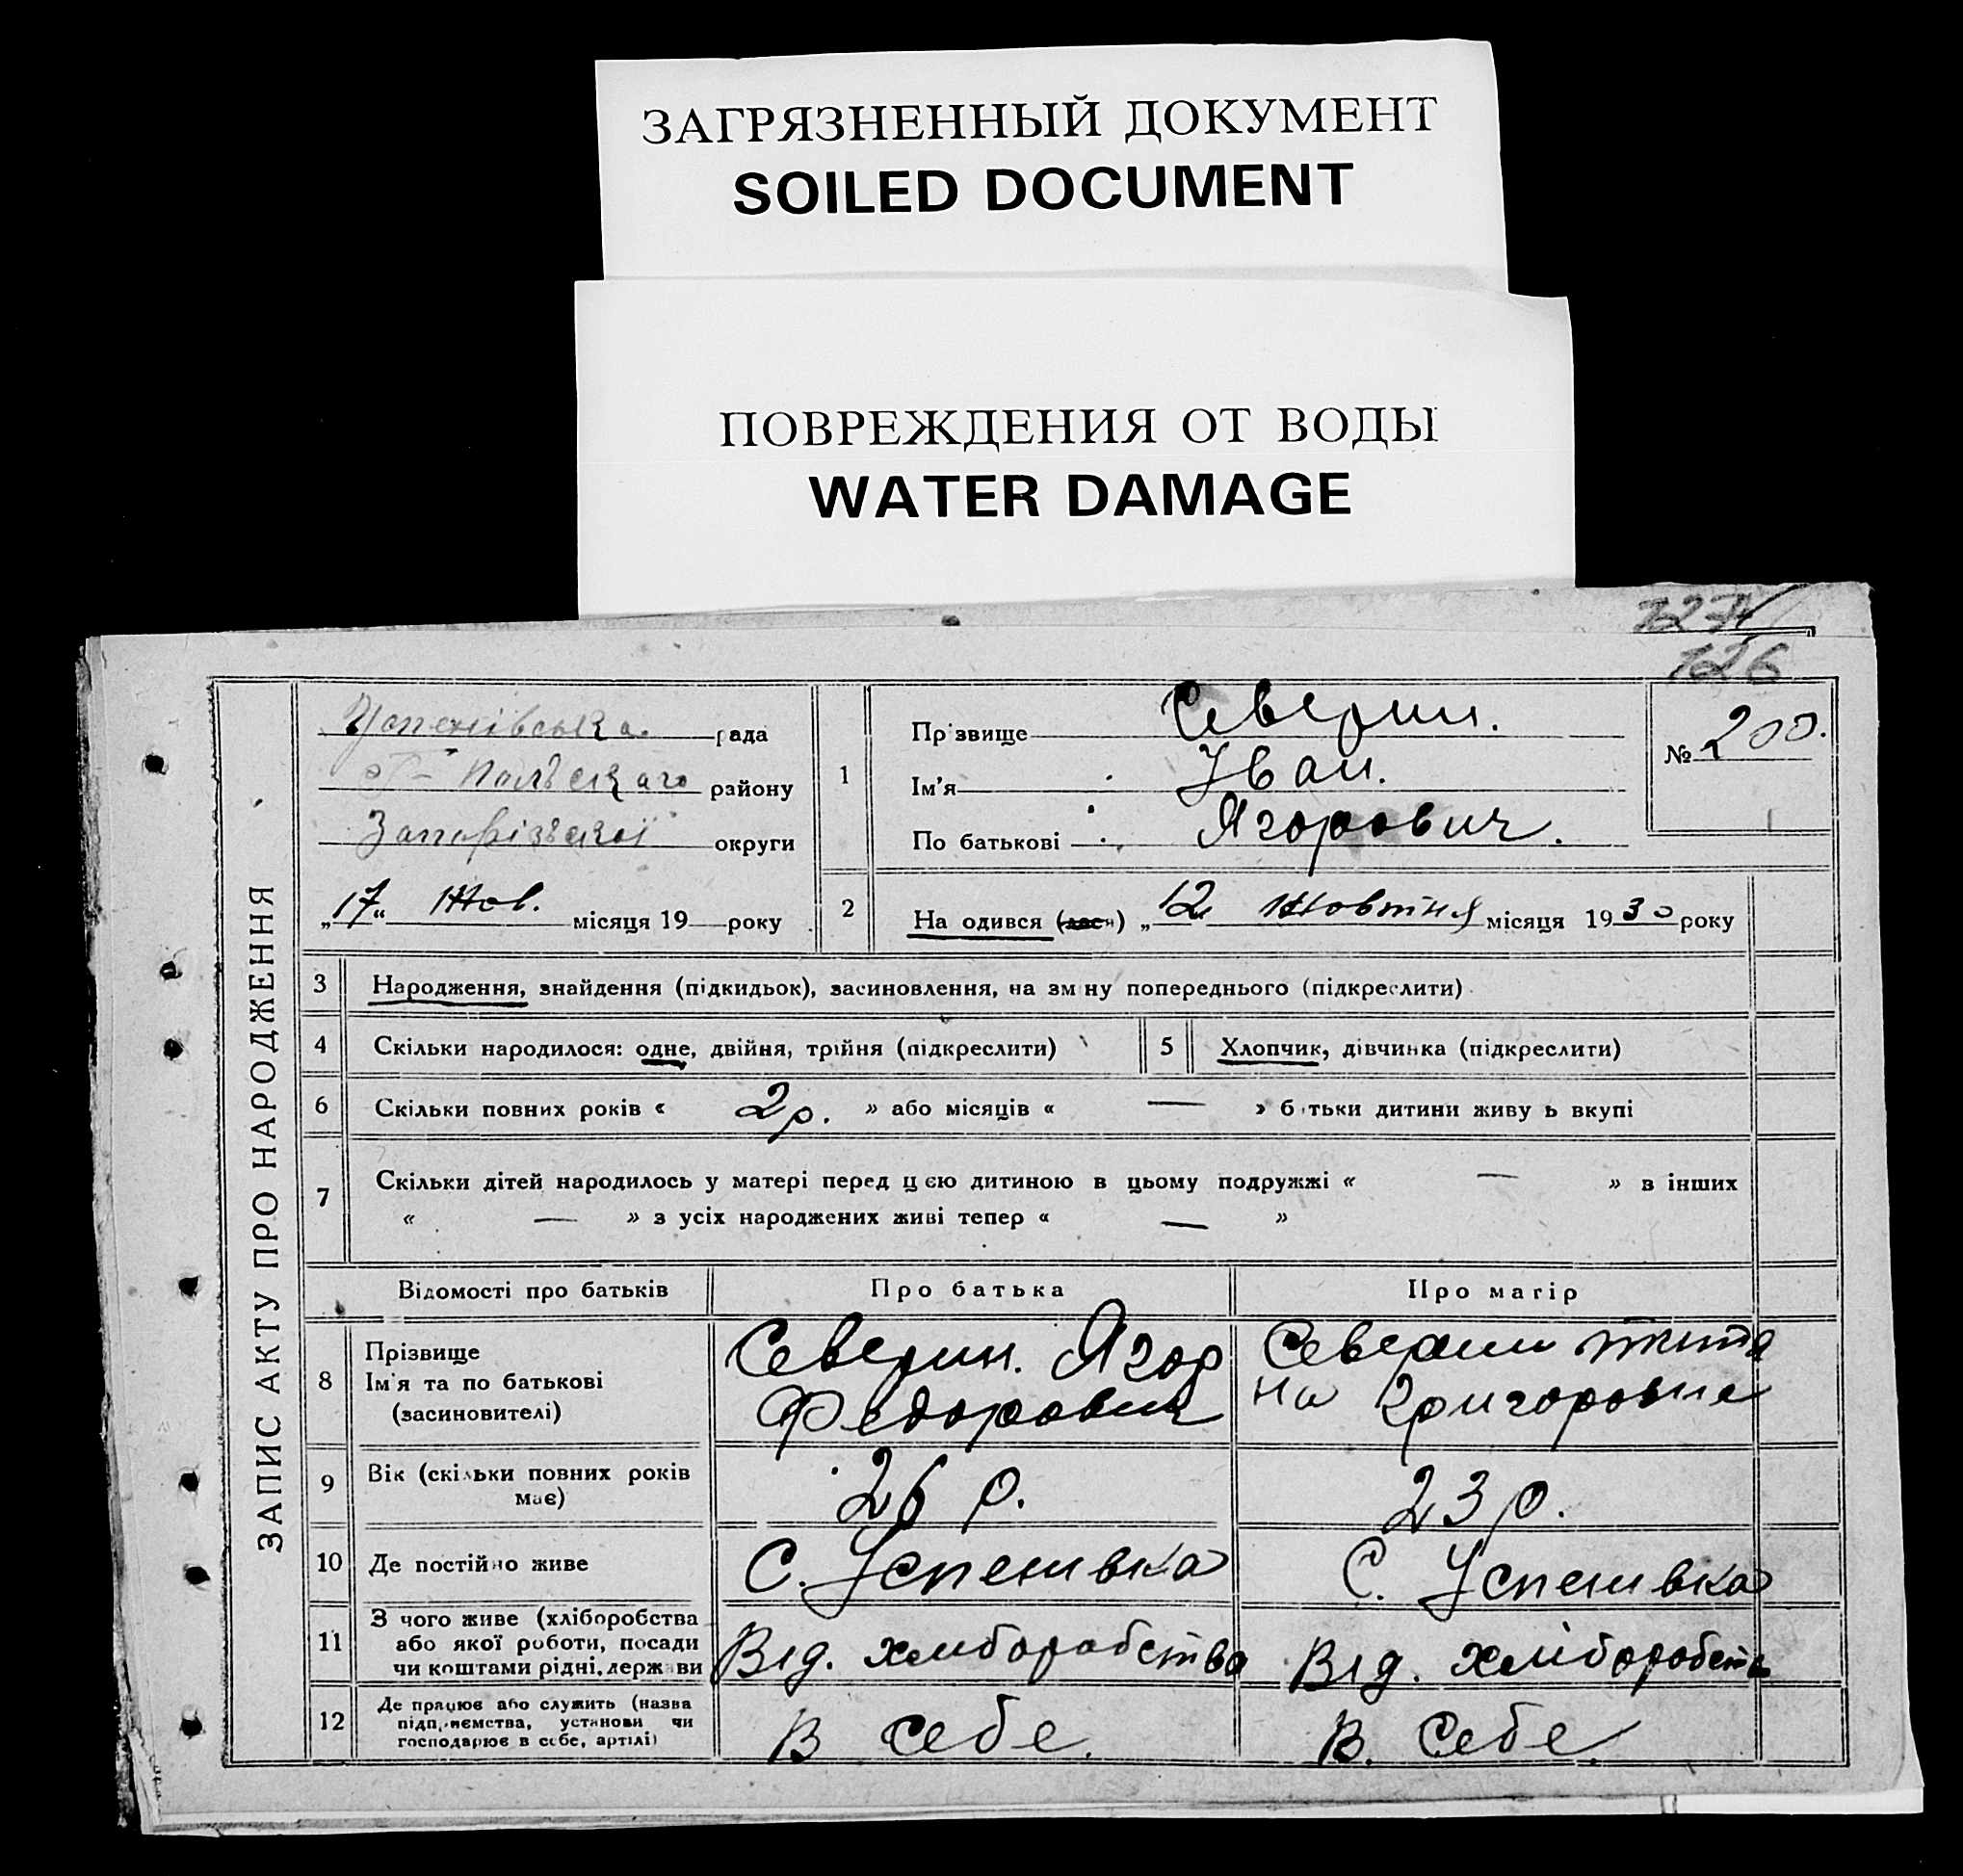 ЗАГРЯЗНЕННЫЙ ДОКУМЕНТ
SOILED DOCUMENT
ПОВРЕЖДЕНИЯ ОТ ВОДЫ
WATER DAMAGE
126
ЗАПИС АКТУ ПРО НАРОДЖЕННЯ
Успенівська рада
Г-Пильського району
Запорізської округи
„17“ Жов. місяця 19 року
1
Прізвище Северин.
Ім'я Іван.
По батькові Ягорович.
№ 200.
2
На одився (лася) „12 Жовтня місяця 1930 року
3 Народження, знайдення (підкидьок), засиновлення, на зм ну попереднього (підкреслити)
4 Скільки народилося: одне, двійня, трійня (підкреслити)
5 Хлопчик, дівчинка (підкреслити)
6 Скільки повних років « 2 р. » або місяців « — » б тьки дитини живу ь вкупі
7 Скільки дітей народилось у матері перед цією дитиною в цьому подружжі « — » в інших
« — » з усіх народжених живі тепер « — »
Відомості про батьків Про батька Про матір
8 Прізвище
Ім'я та по батькові
(засиновителі)
Северин. Ягор
Федорович
Северин
на Григоровна
9 Вік (скільки повних років
має)
26 р.
23 р.
10 Де постійно живе
С. Успенивка
С. Успенивка
11 З чого живе (хліборобства
або якої роботи, посади
чи коштами рідні, держави
Від. хлиборобства
Від. хліборобств
12 Де працює або служить (назва
підприємства, установи чи
господарює в себе, артілі)
В себе.
В. Себе.